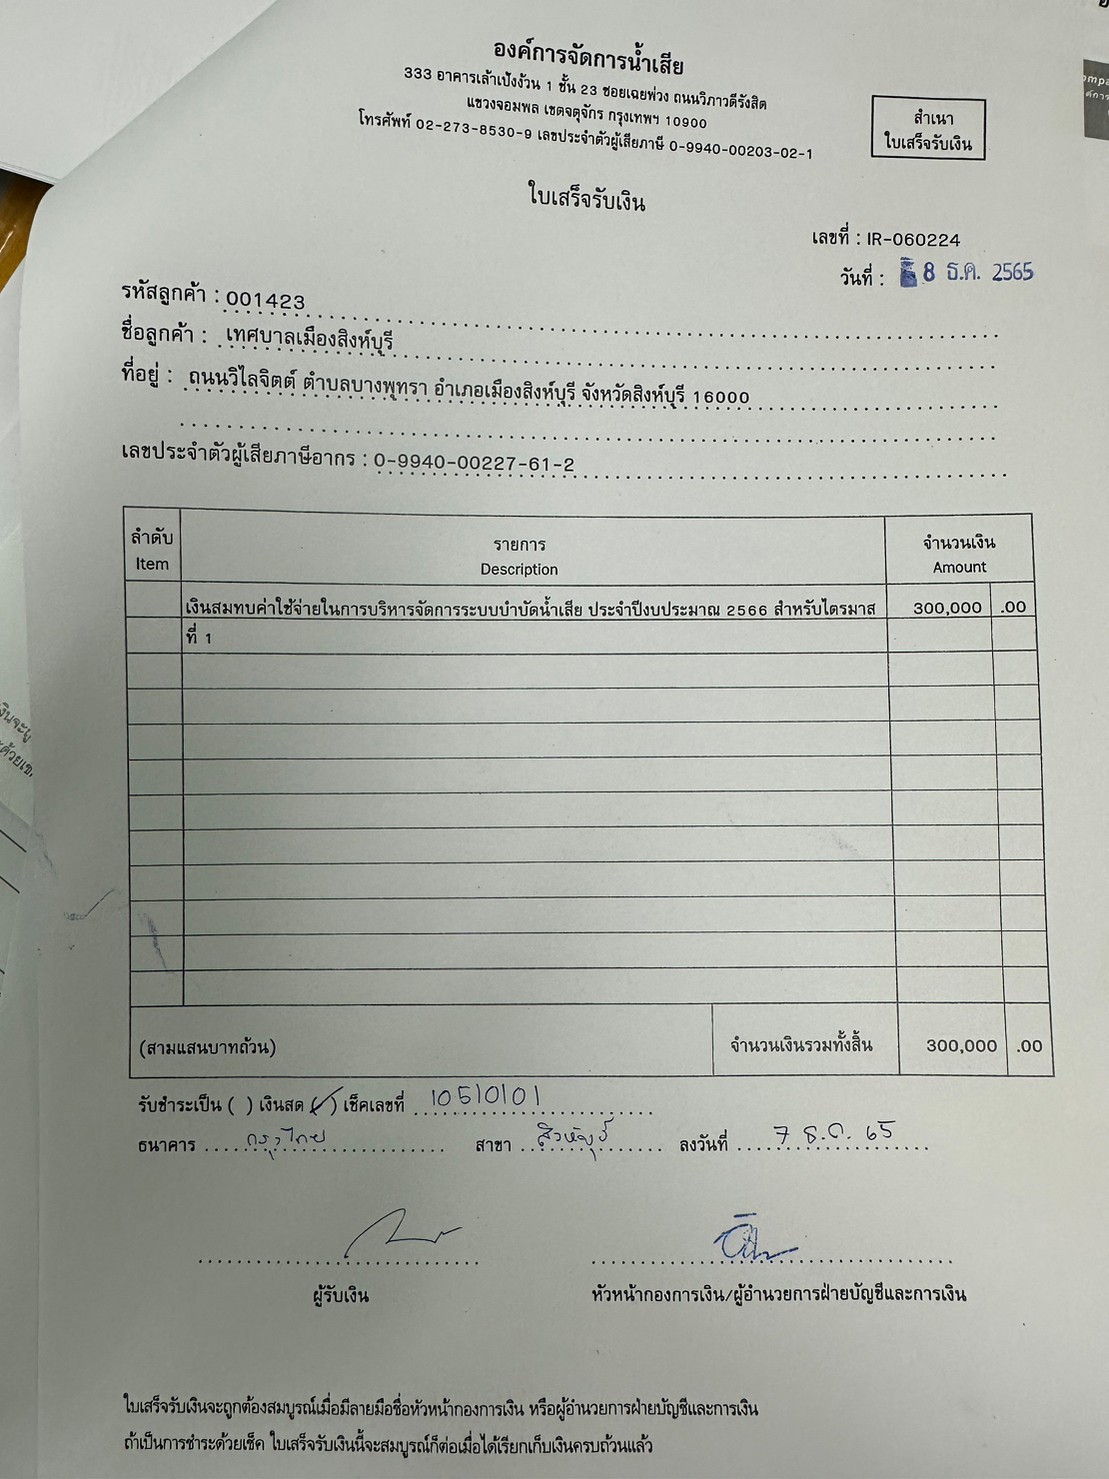 องค์การจัดการน้ำเสีย
333 อาคารเล้าเป้งง้วน 1 ชั้น 23 ซอยเฉยพ่วง ถนนวิภาวดีรังสิต
แขวงจอมพล เขตจตุจักร กรุงเทพฯ 10900
โทรศัพท์ 02-273-8530-9 เลขประจำตัวผู้เสียภาษี 0-9940-00203-02-1
สำเนา
ใบเสร็จรับเงิน
ใบเสร็จรับเงิน
เลขที่ : IR-060224
วันที่ : 8 ธ.ค. 2565
รหัสลูกค้า : 001423
ชื่อลูกค้า : เทศบาลเมืองสิงห์บุรี
ที่อยู่ : ถนนวิไลจิตต์ ตำบลบางพุทรา อำเภอเมืองสิงห์บุรี จังหวัดสิงห์บุรี 16000
เลขประจำตัวผู้เสียภาษีอากร : 0-9940-00227-61-2
ลำดับ รายการ จำนวนเงิน
Item Description Amount
เงินสมทบค่าใช้จ่ายในการบริหารจัดการระบบบำบัดน้ำเสีย ประจำปีงบประมาณ 2566 สำหรับไตรมาส 300,000 .00
ที่ 1
(สามแสนบาทถ้วน) จำนวนเงินรวมทั้งสิ้น 300,000 .00
รับชำระเป็น ( ) เงินสด (✓) เช็คเลขที่ 10510101
ธนาคาร กรุงไทย สาขา สิงห์บุรี ลงวันที่ 7 ธ.ค. 65
ผู้รับเงิน หัวหน้ากองการเงิน/ผู้อำนวยการฝ่ายบัญชีและการเงิน
ใบเสร็จรับเงินจะถูกต้องสมบูรณ์เมื่อมีลายมือชื่อหัวหน้ากองการเงิน หรือผู้อำนวยการฝ่ายบัญชีและการเงิน
ถ้าเป็นการชำระด้วยเช็ค ใบเสร็จรับเงินนี้จะสมบูรณ์ก็ต่อเมื่อได้เรียกเก็บเงินครบถ้วนแล้ว